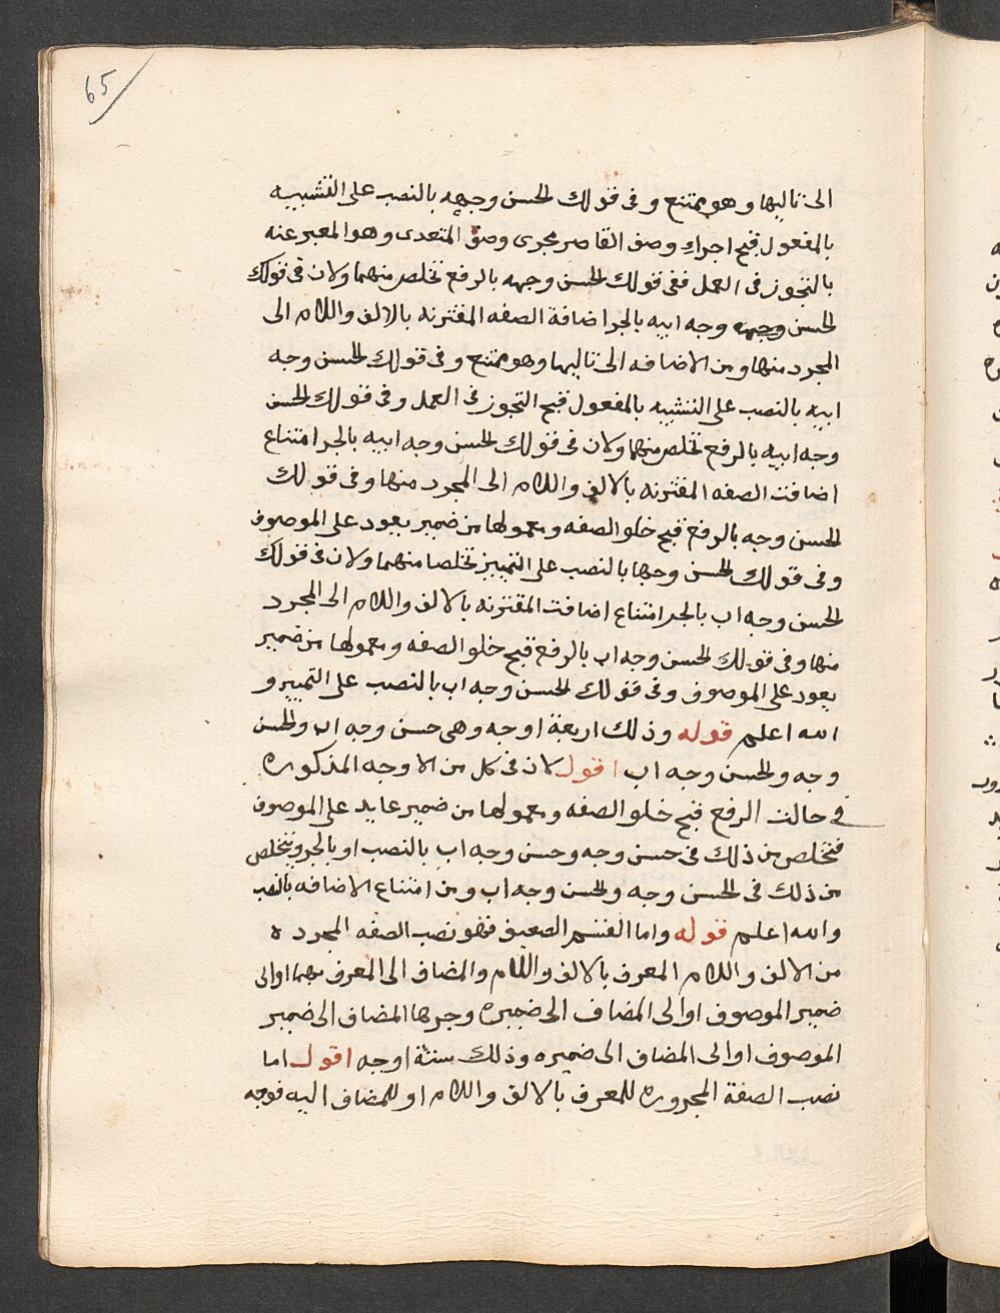 65
الى تاليها وهو ممتنع وفى قولك لحسن وجهه بالنصب على التشبيه
بالمفعول قبح اجراء وصف القاصر مجرى وصف المتعدى وهو المعبر عنه
بالتجوز فى العمل ففى قولك لحسن وجهه بالرفع تخلص منهما ولان فى قولك
لحسن وجه ابيه بالجر اضافة الصفه المقترنه بالالف واللام الى
المجرد منها ومن الاضافه الى تاليها وهو ممتنع وفى قولك للحسن وجه
ابيه بالنصب على التشبيه بالمفعول قبح التجوز فى العمل وفى قولك لحسن
وجه ابيه بالرفع تخلص منهما ولان فى قولك لحسن وجه ابيه بالجر امتناع
اضافت الصفه المقترنه بالالف واللام الى المجرد منها وفى قولك
لحسن وجه بالرفع قبح خلو الصفه ومعمولها من ضمير يعود على الموصوف
وفى قولك لحسن وجها بالنصب على التمييز تخلصا منهما ولان فى قولك
لحسن وجه اب بالجر امتناع اضافت المقترنه بالالف واللام الى المجرد
منها وفى قولك لحسن وجه اب بالرفع قبح خلو الصفه ومعمولها من ضمير
يعود على الموصوف وفى قولك لحسن وجه اب بالنصب على التمييز و
الله اعلم قوله وذلك اربعة اوجه وهى حسن وجه اب ولحسن
وجه ولحسن وجه اب اقول لان فى كل من الاوجه المذكوره
فى حالت الرفع قبح خلو الصفه ومعمولها من ضمير عايد على الموصوف
فتخلص من ذلك فى حسن وجه وحسن وجه اب بالنصب او بالجر ويتخلص
من ذلك فى لحسن وجه ولحسن وجه اب ومن امتناع الاضافه بالنصب
والله اعلم قوله واما القسم الضعيف فهو نصب الصفه المجرده
من الالف واللام المعرف بالالف واللام والمضاف الى المعرف بهما اوالى
ضمير الموصوف اوالى المضاف الى ضميره وجرها المضاف الى ضمير
الموصوف اوالى المضاف الى ضميره وذلك ستة اوجه اقول اما
نصب الصفة المجروره للمعرف بالالف واللام او للمضاف اليه فوجه